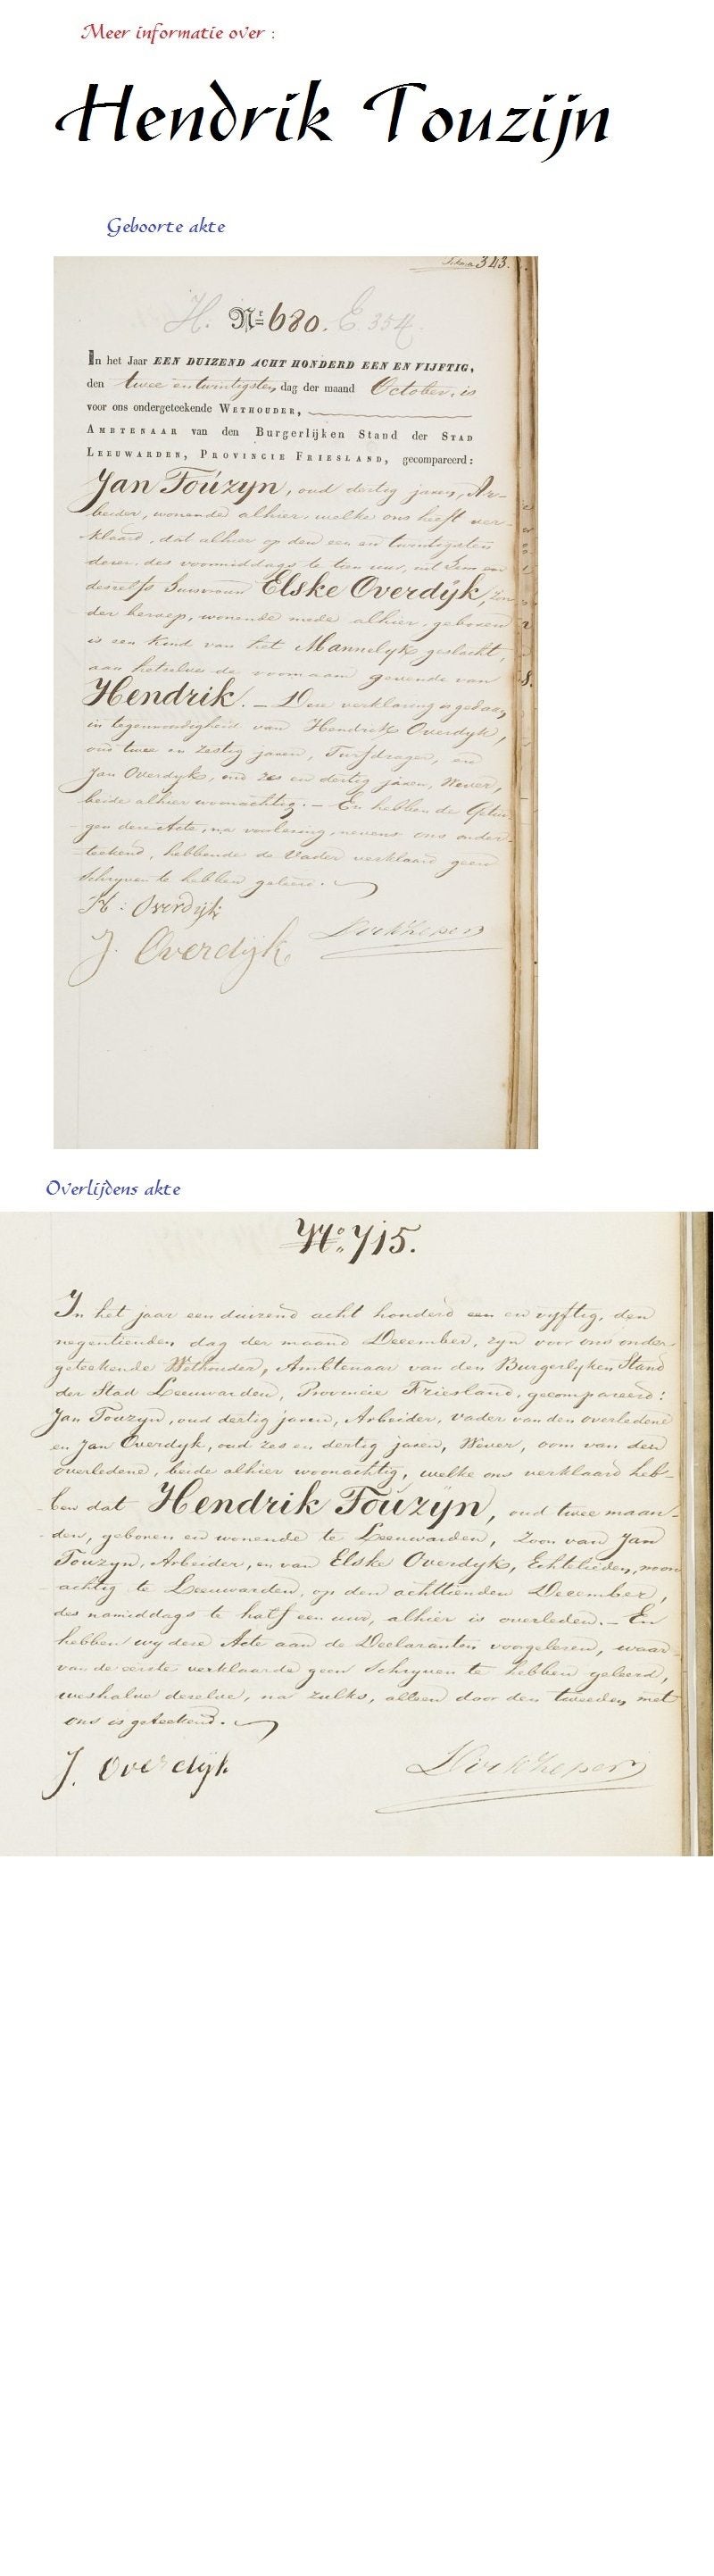 Meer informatie over :
Hendrik Touzijn
Geboorte akte
343.
H. Nr. 680. E. 354.
In het Jaar EEN DUIZEND ACHT HONDERD EEN EN VIJFTIG,
den twee en twintigsten dag der maand October, is
voor ons ondergeteekende WETHOUDER,
AMBTENAAR van den Burgerlijken Stand der STAD
LEEUWARDEN, PROVINCIE FRIESLAND, gecompareerd:
Jan Toúzyn, oud dertig jaren, Ar-
beider, wonende alhier, welke ons heeft ver-
klaard, dat alhier op den een en twintigsten
dezer, des voormiddags te tien uur, uit hem en
deszelfs huisvrouw Elske Overdÿk, zon-
der beroep, wonende mede alhier, geboren
is een kind van het Mannelyk geslacht,
aan hetzelve de voornaam gevende van
Hendrik. — Deze verklaring is gedaan,
in tegenwoordigheid van Hendrik Overdyk,
oud twee en zestig jaren, Turfdrager, en
Jan Overdyk, oud zes en dertig jaren, Wever,
beide alhier woonachtig. — En hebben de Getui-
gen deze Acte, na voorlezing, nevens ons onder-
teekend, hebbende de Vader verklaard geen
schryven te hebben geleerd.
H: Overdijk
J. Overdijk
Overlijdens akte
No. 715.
In het jaar een duizend acht honderd een en vyftig, den
negentienden dag der maand December, zyn voor ons onder-
geteekende Wethouder, Ambtenaar van den Burgerlyken Stand
der Stad Leeuwarden, Provincie Friesland, gecompareerd:
Jan Touzyn, oud dertig jaren, Arbeider, vader van den overledene
en Jan Overdyk, oud zes en dertig jaren, Wever, oom van den
overledene, beide alhier woonachtig, welke ons verklaard heb-
ben dat Hendrik Toúzÿn, oud twee maan-
den, geboren en wonende te Leeuwarden, Zoon van Jan
Touzyn, Arbeider, en van Elske Overdyk, Echtelieden, woon-
achtig te Leeuwarden, op den achttienden December,
des namiddags te half een uur, alhier is overleden. — En
hebben wy deze Acte aan de Declaranten voorgelezen, waar-
van de eerste verklaarde geen schryven te hebben geleerd,
weshalve dezelve, na zulks, alleen door den tweeden met
ons is geteekend.
J. Overdijk